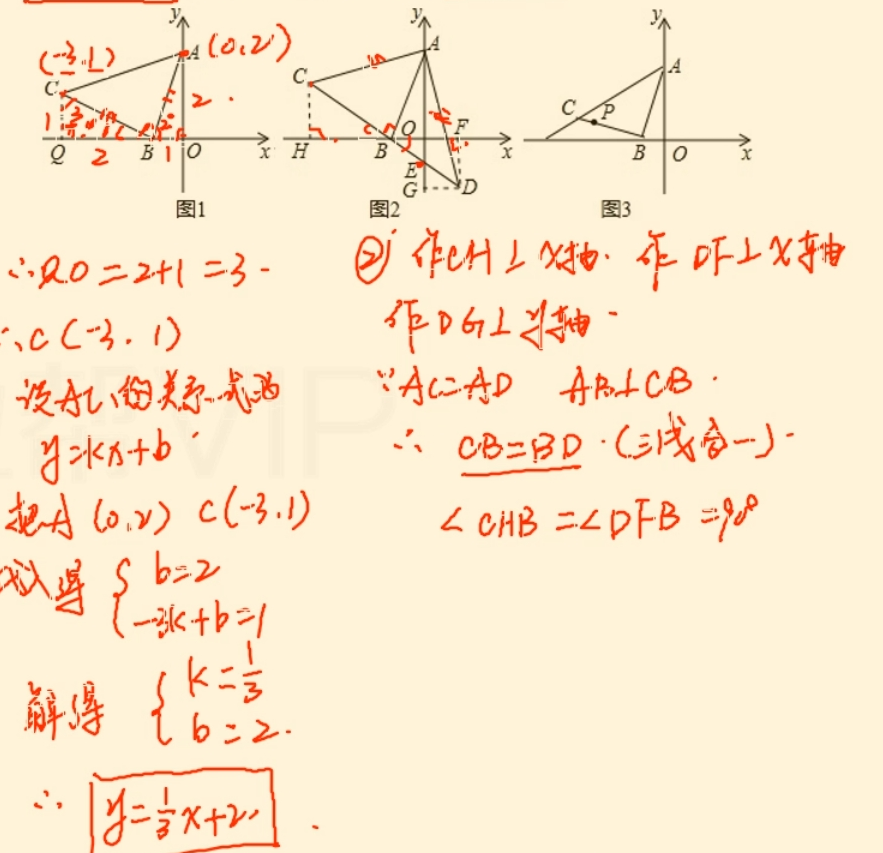 y y y
(-3,1) A (0,2) A A
C C C P
1 2 2 1
Q B O x H B O F x B O x
E
G D
图1 图2 图3
∴QO=2+1=3
∴C(-3,1)
设AC的关系式为
y=kx+b
把A(0,2) C(-3,1)
代入得 { b=2
-3k+b=1
解得 { k=1/3
b=2.
∴ y=1/3x+2.
② 作CH⊥X轴. 作DF⊥X轴
作DG⊥y轴.
∵AC=AD AB⊥CB.
∴ CB=BD.(三线合一).
∠CHB=∠DFB=90°
VIP